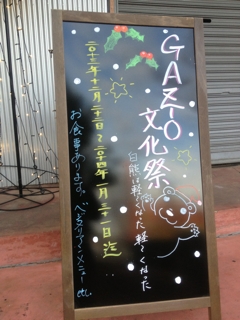 GAZIO 文化祭
白熊は軽くなった軽くなった
二〇十三年十二月二十二日〜二〇十四年一月三十一日迄
お食事あります。ベジタリアンメニューetc.